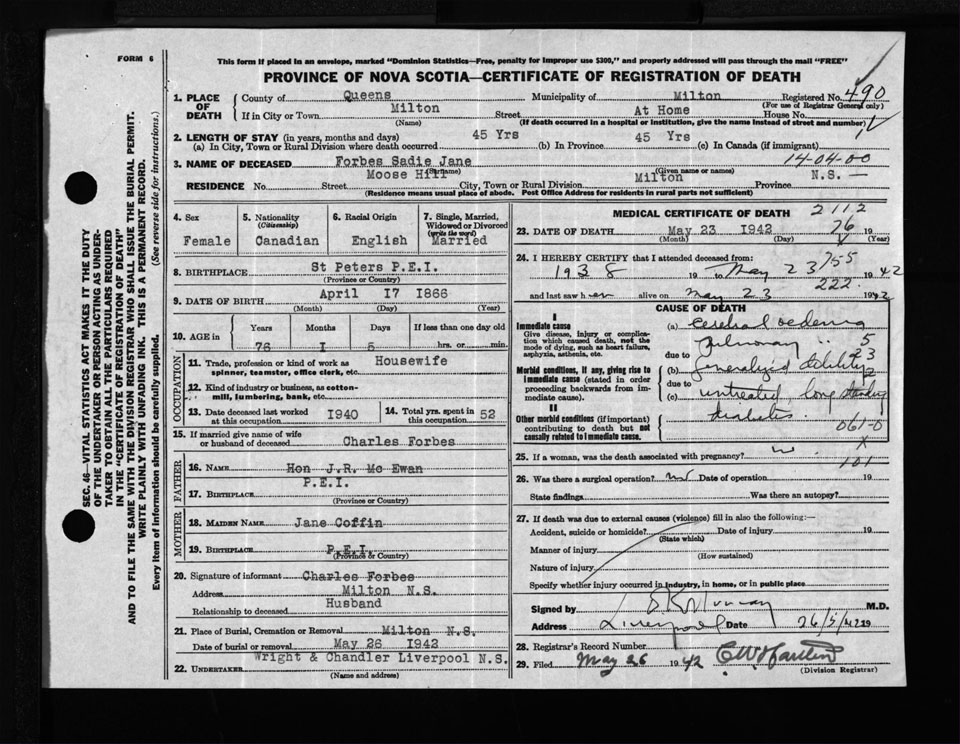 FORM 6
This form if placed in an envelope, marked "Dominion Statistics—Free, penalty for improper use $300," and properly addressed will pass through the mail "FREE"
PROVINCE OF NOVA SCOTIA—CERTIFICATE OF REGISTRATION OF DEATH
SEC. 46—VITAL STATISTICS ACT MAKES IT THE DUTY
OF THE UNDERTAKER OR PERSON ACTING AS UNDER-
TAKER TO OBTAIN ALL THE PARTICULARS REQUIRED
IN THE "CERTIFICATE OF REGISTRATION OF DEATH"
AND TO FILE THE SAME WITH THE DIVISION REGISTRAR WHO SHALL ISSUE THE BURIAL PERMIT.
WRITE PLAINLY WITH UNFADING INK. THIS IS A PERMANENT RECORD.
Every item of information should be carefully supplied. (See reverse side for instructions.)
1. PLACE OF DEATH County of Queens Municipality of Milton Registered No. 490
(For use of Registrar General only)
If in City or Town Milton Street At Home House No.
(Name) (If death occurred in a hospital or institution, give the name instead of street and number)
2. LENGTH OF STAY (in years, months and days)
(a) In City, Town or Rural Division where death occurred 45 Yrs (b) In Province 45 Yrs (c) In Canada (if immigrant)
3. NAME OF DECEASED Forbes Sadie Jane 14-04-00
(Surname) (Given name or names)
RESIDENCE No. Street Moose Hill City, Town or Rural Division Milton Province N.S.
(Residence means usual place of abode. Post Office Address for residents in rural parts not sufficient)
4. Sex Female
5. Nationality (Citizenship) Canadian
6. Racial Origin English
7. Single, Married, Widowed or Divorced (write the word) Married
8. BIRTHPLACE St Peters P.E.I.
(Province or Country)
9. DATE OF BIRTH April 17 1866
(Month) (Day) (Year)
10. AGE in Years Months Days If less than one day old
76 1 5 hrs. or min.
OCCUPATION
11. Trade, profession or kind of work as spinner, teamster, office clerk, etc. Housewife
12. Kind of industry or business, as cotton-mill, lumbering, bank, etc.
13. Date deceased last worked at this occupation 1940
14. Total yrs. spent in this occupation 52
15. If married give name of wife or husband of deceased Charles Forbes
FATHER
16. NAME Hon J.R. Mc Ewan
17. BIRTHPLACE P.E.I.
(Province or Country)
MOTHER
18. MAIDEN NAME Jane Coffin
19. BIRTHPLACE P.E.I.
(Province or Country)
20. Signature of informant Charles Forbes
Address Milton N.S.
Relationship to deceased Husband
21. Place of Burial, Cremation or Removal Milton N.S.
Date of burial or removal May 26 1942
22. UNDERTAKER Wright & Chandler Liverpool N.S.
(Name and address)
MEDICAL CERTIFICATE OF DEATH 2112
23. DATE OF DEATH May 23 1942 76 19
(Month) (Day) (Year)
24. I HEREBY CERTIFY that I attended deceased from:
1938 19 to May 23 1942
755
222
and last saw her alive on May 23 1942
CAUSE OF DEATH
I
Immediate cause
Give disease, injury or complication which caused death, not the mode of dying, such as heart failure, asphyxia, asthenia, etc.
Morbid conditions, if any, giving rise to immediate cause (stated in order proceeding backwards from immediate cause).
II
Other morbid conditions (if important) contributing to death but not causally related to immediate cause.
(a) Cerebral oedema
pulmonary 5
due to 23
(b) generalized debility
due to
(c) untreated, long standing
diabetes
061-0
25. If a woman, was the death associated with pregnancy?
101
26. Was there a surgical operation? no Date of operation 19
State findings Was there an autopsy?
27. If death was due to external causes (violence) fill in also the following:—
Accident, suicide or homicide? Date of injury 19
(State which)
Manner of injury
(How sustained)
Nature of injury
Specify whether injury occurred in industry, in home, or in public place
Signed by Murray M.D.
Address Liverpool Date 26/5/42 19
28. Registrar's Record Number
29. Filed May 26 1942
(Division Registrar)